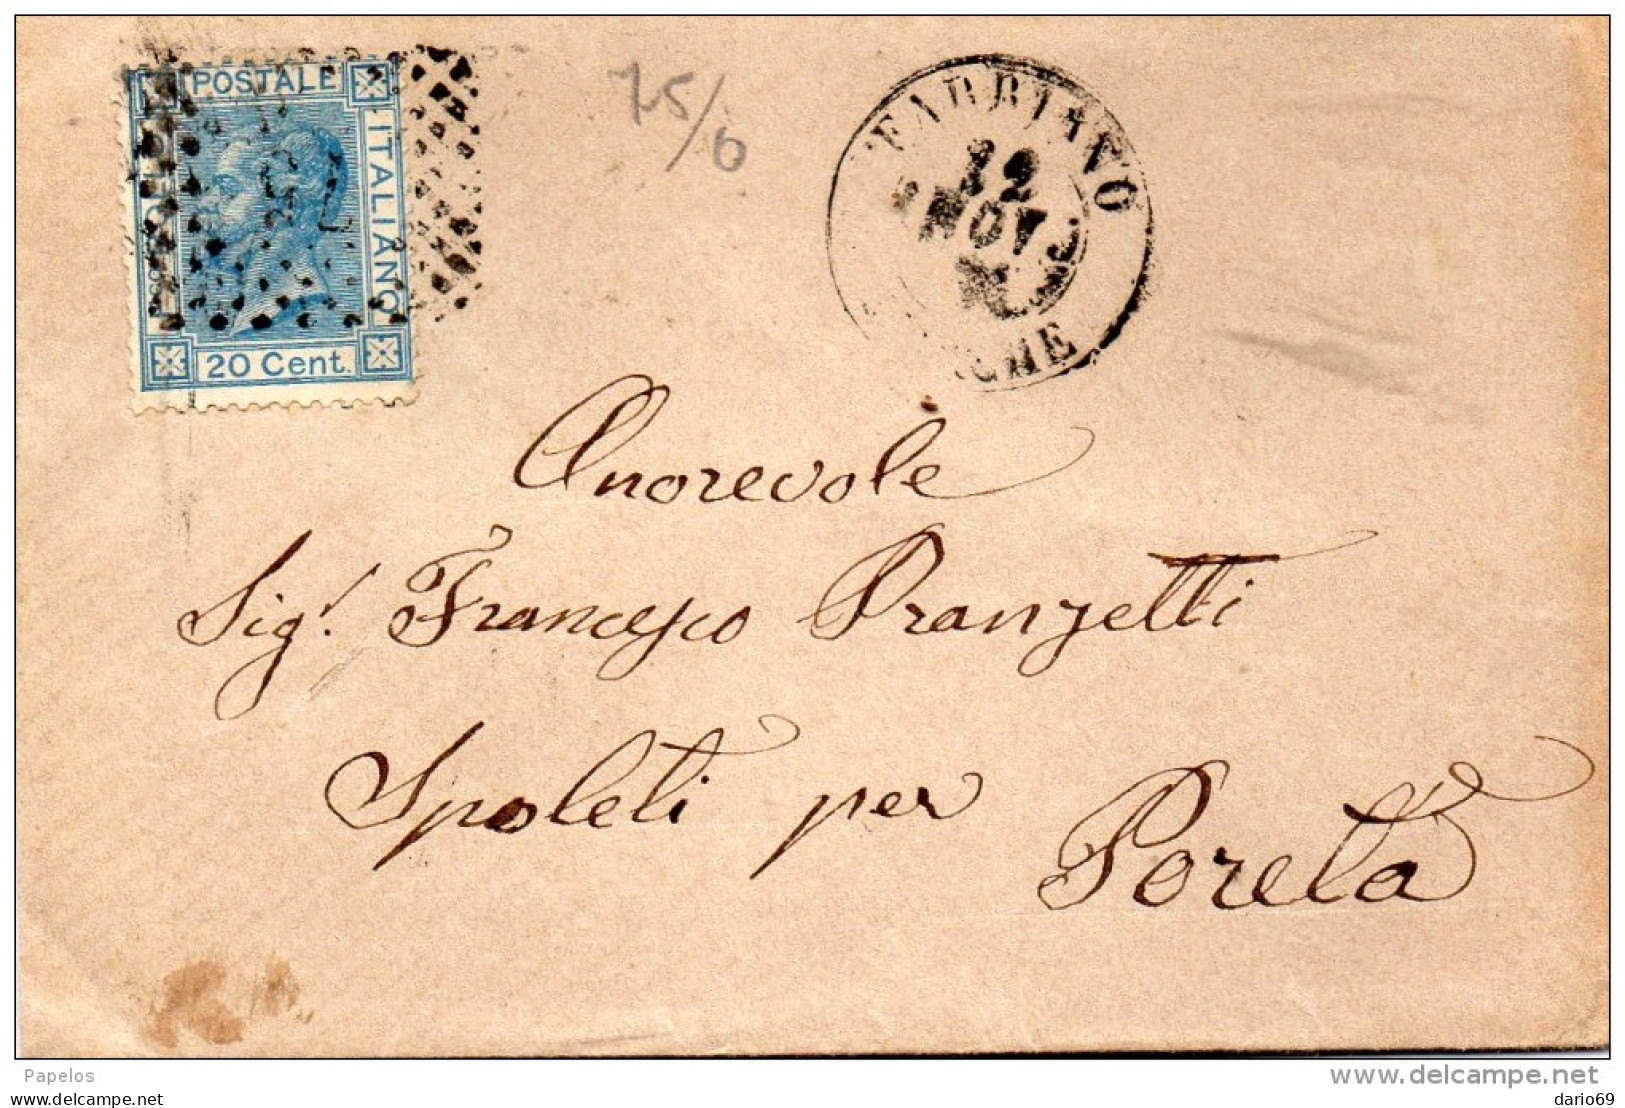 POSTALE
ITALIANO
20 Cent.
75/0
FABRIANO
12
NOV
Onorevole
Sig.r Francesco Pranzetti
Spoleti per
Poreta
Papelos
www.delcampe.net
dario69